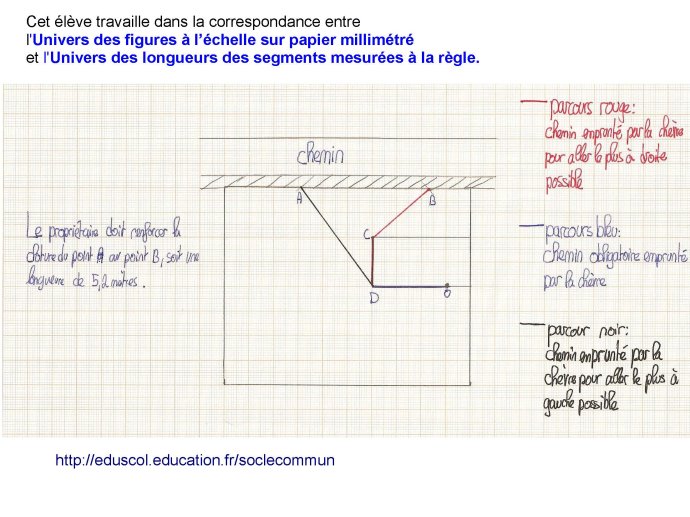 Cet élève travaille dans la correspondance entre
l'Univers des figures à l'échelle sur papier millimétré
et l'Univers des longueurs des segments mesurées à la règle.
chemin
A
B
C
D
O
Le propriétaire doit renforcer la
clôture du point A au point B, soit une
longueur de 5,2 mètres.
parcours rouge:
chemin emprunté par la chèvre
pour aller le plus à droite
possible
parcours bleu:
chemin obligatoire emprunté
par la chèvre
parcour noir:
chemin emprunté par la
chèvre pour aller le plus à
gauche possible
http://eduscol.education.fr/soclecommun